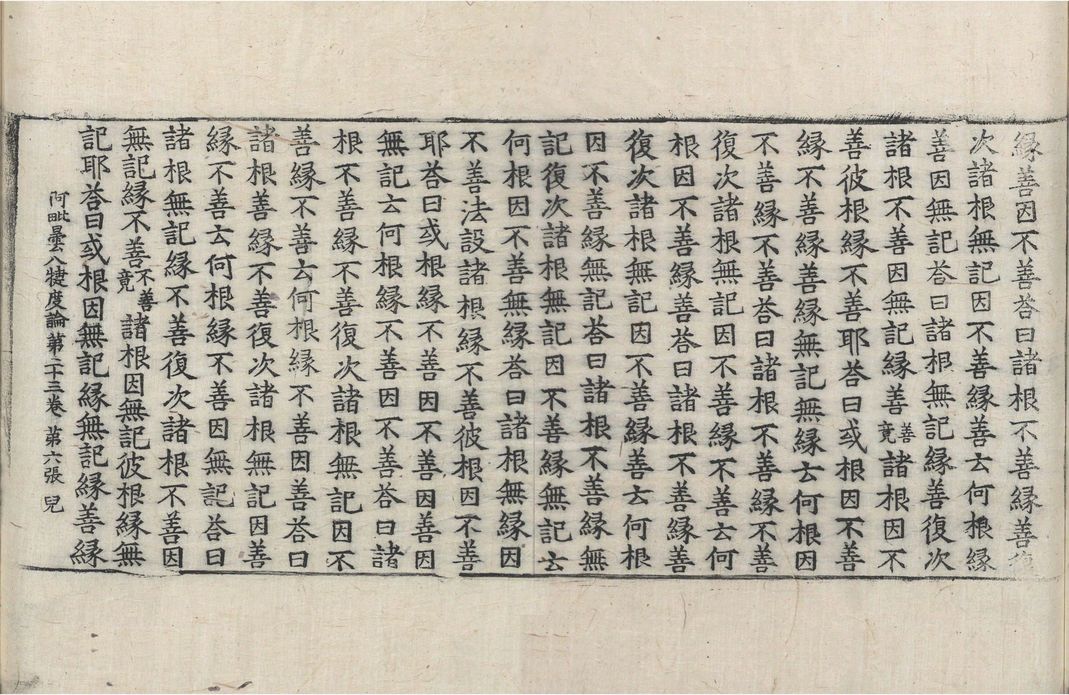 緣善因不善荅曰諸根不善緣善復
次諸根無記因不善緣善云何根緣
善因無記荅曰諸根無記緣善復次
諸根不善因無記緣善善竟諸根因不
善彼根緣不善耶荅曰或根因不善
緣不善緣善緣無記無緣云何根因
不善緣不善荅曰諸根不善緣不善
復次諸根無記因不善緣不善云何
根因不善緣善荅曰諸根不善緣善
復次諸根無記因不善緣善云何根
因不善緣無記荅曰諸根不善緣無
記復次諸根無記因不善緣無記云
何根因不善無緣荅曰諸根無緣因
不善法設諸根緣不善彼根因不善
耶荅曰或根緣不善因不善因善因
無記云何根緣不善因不善荅曰諸
根不善緣不善復次諸根無記因不
善緣不善云何根緣不善因善荅曰
諸根善緣不善復次諸根無記因善
緣不善云何根緣不善因無記荅曰
諸根無記緣不善復次諸根不善因
無記緣不善不善竟諸根因無記彼根緣無
記耶荅曰或根因無記緣無記緣善緣
阿毗曇八犍度論第二十三卷 第六張 兒